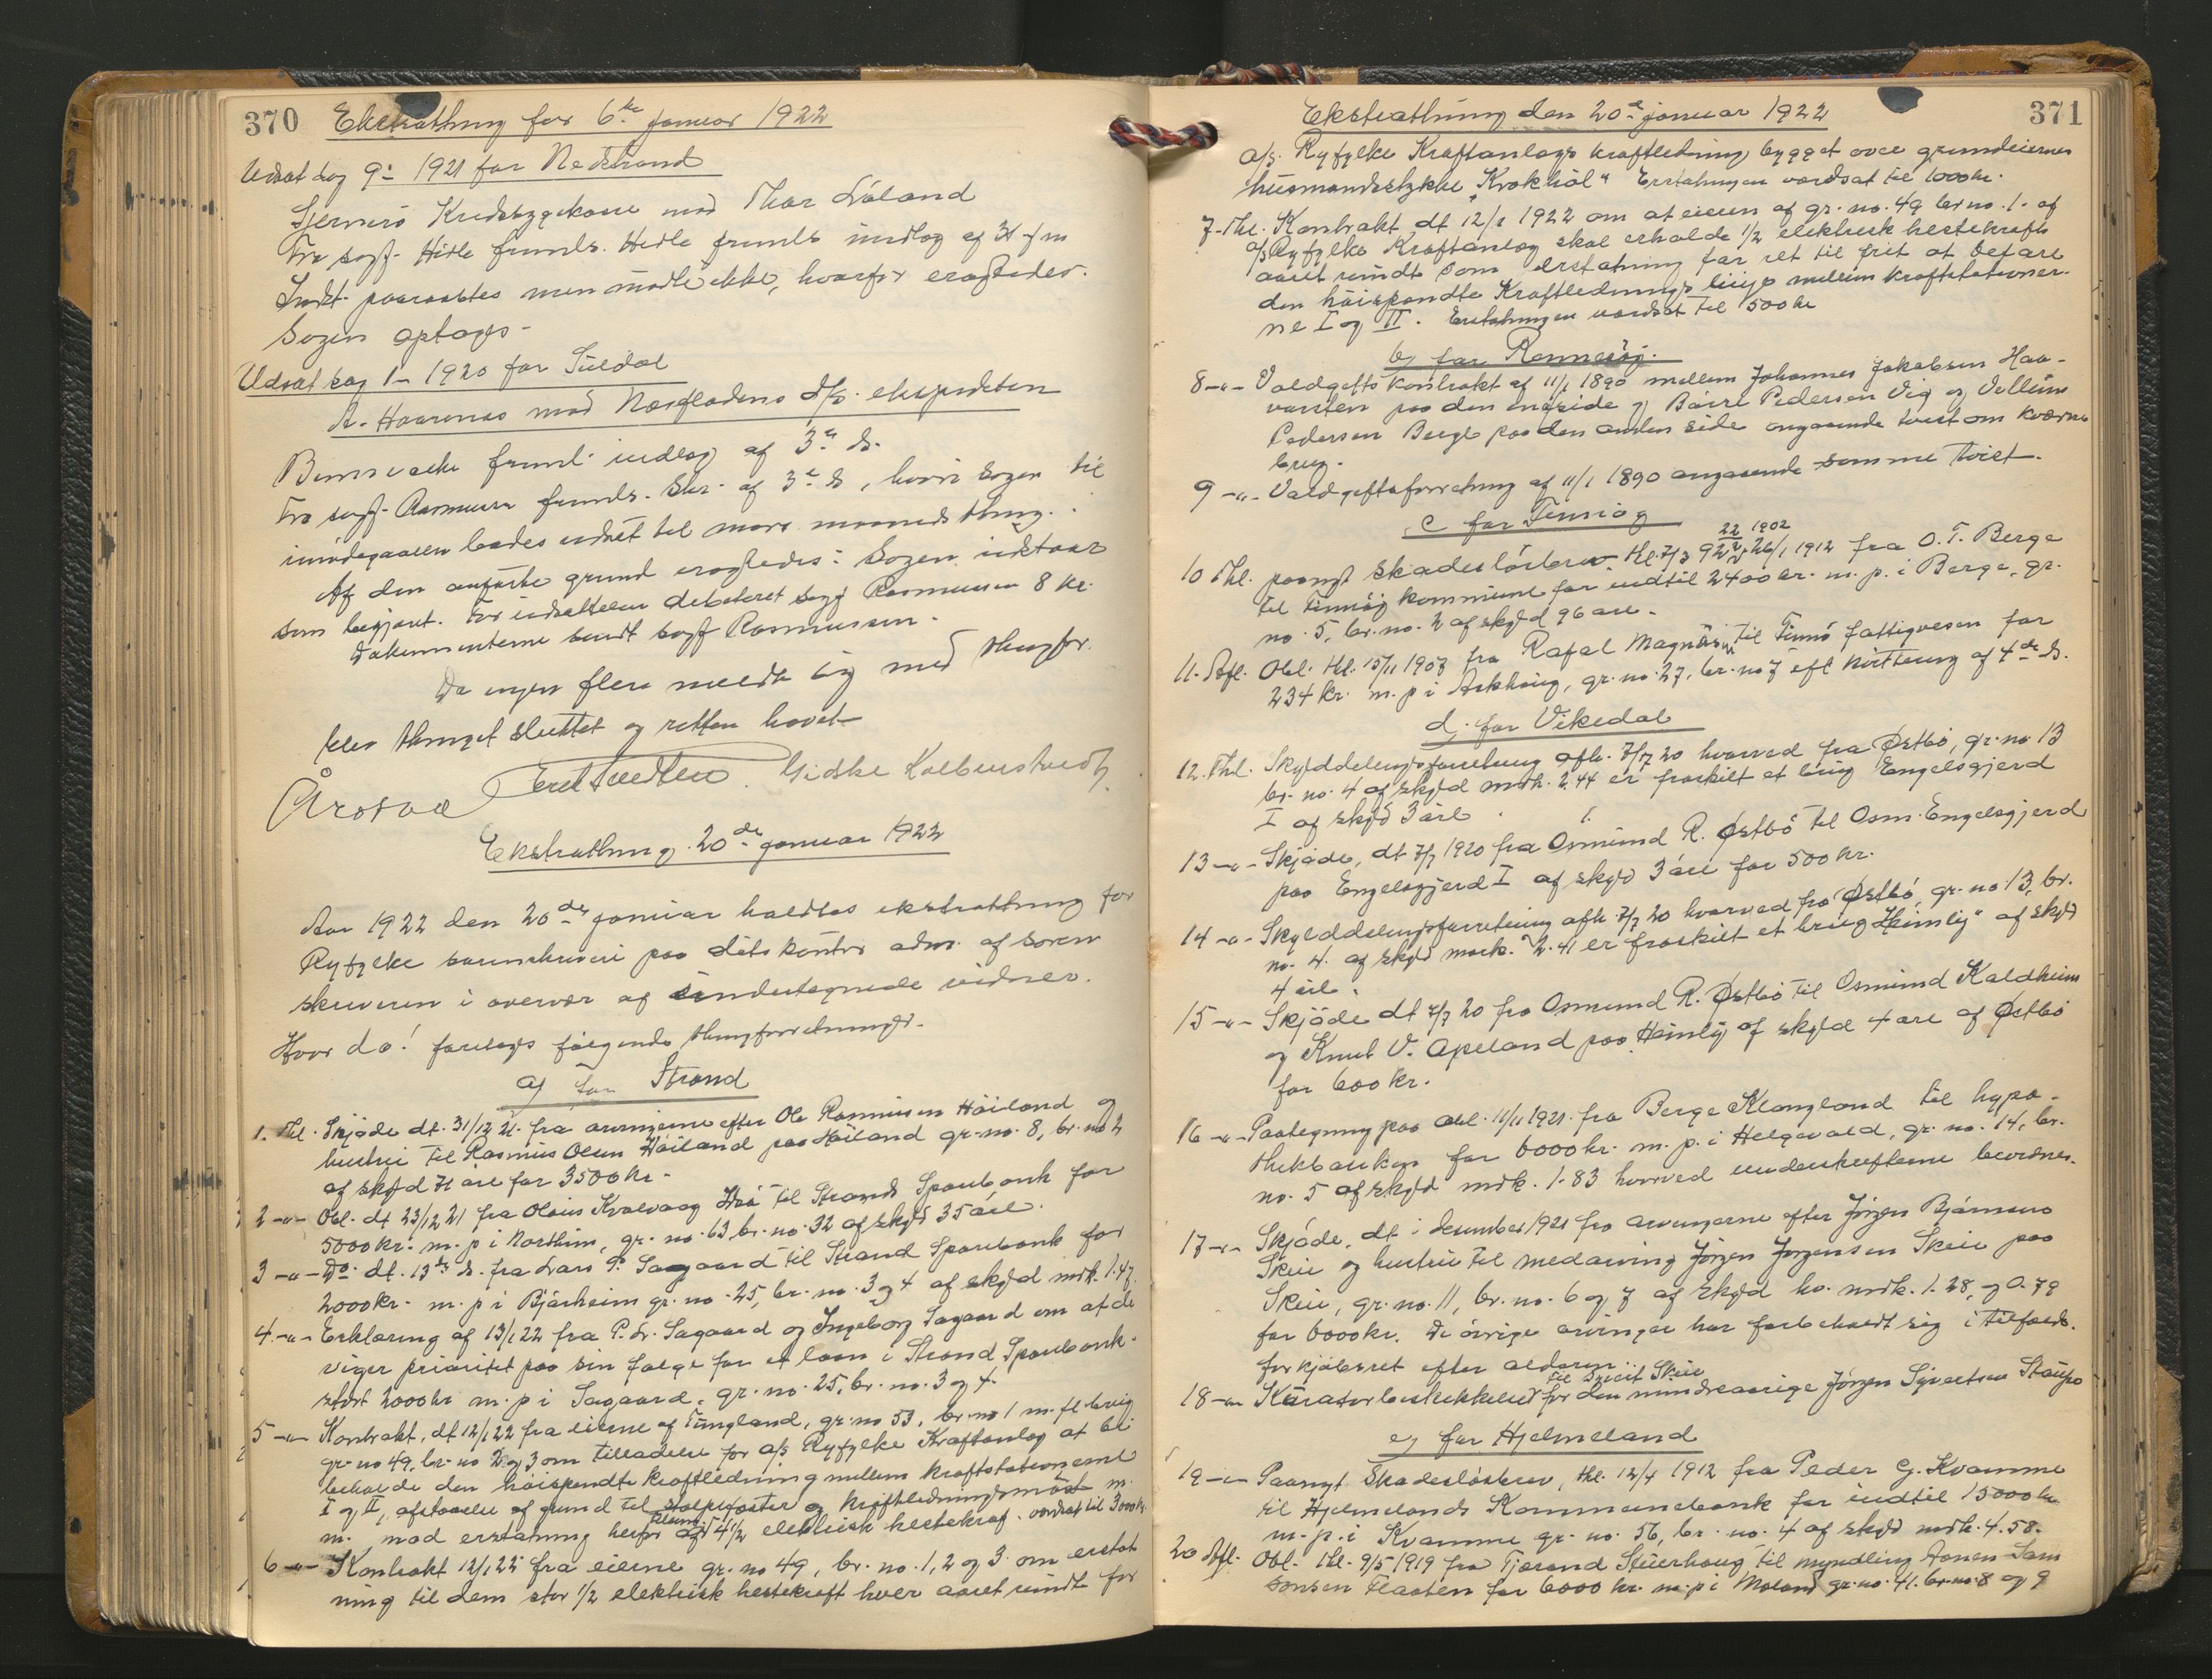 370 Ekstrathing for 6te januar 1922
Udsat sag 9: 1921 for Nedstrand
Sjernerö Kredsygekasse mod Thor Låland
Fra sagf. Hitle freml. indlæg af 31
Indst. paaraabtes men mödte ikke, hvorfor eragtedes:
Sagen optages-
Udsat sag 1- 1920 for Suldal
A. Haarenes mod Næsfladens d/s. ekspedition
freml. indlæg af 3e ds.
Fra sagf. Rasmussen freml. skr. af 3e ds, hvori sagen til
imödegaaelse bades udsat til marts maaneds thing.
Af den anförte grund eragtedes: Sagen udstaar
som begjært. For udsættelsen debiteret sagf Rasmussen 8 kr.
Dokumenterne sendt sagf Rasmussen.
Da ingen flere meldte sig med thingfor.
blev thinget sluttet og retten hævet
Årstad Gidske Kolbenstvedt
Ekstrathing 20de januar 1922
Aar 1922 den 20de januar holdtes ekstrathing for
Ryfylke sorenskriveri paa dets kontor adm. af soren
skriveren i overvær af undertegnede vidner.
Hvor da: foretoges følgende thingforretninger.
a) for Strand
1. Thl. Skjöde dt. 31/12 21. fra arvingerne efter Ole Rasmussen Höiland og
hustru til Rasmus Olsen Höiland paa Höiland gr. no. 8, br. no 2
af skyld 71 öre for 3500 kr.
2 -"- Obl. dt 23/12 21 fra Olaus Kvalvaag til Strands Sparebank for
5000 kr. m. p i Nordheim, gr. no. 63, br. no. 32 af skyld 35 öre.
3 -"- Do. dt. 13de ds. fra Lars P. Sagaard til Strand Sparebank for
2000 kr. m. p i Bjårheim gr. no. 25, br. no. 3 og 4 af skyld mrk. 1.47.
4 -"- Erklæring af 13/1 22 fra P. L. Sagaard og Ingeborg Sagaard om at de
viger prioritet paa sin følge for et laan i Strand Sparebank
stort 2000 kr m. p i Sagaard, gr. no. 25, br. no. 3 og 4.
5 -"- Kontrakt, dt 12/1 22 fra eierne af Tungland, gr. no 53, br. no 1 m. fl. brug
gr. no 49, br. no 2 og 3 om tilladelse for a/s Ryfylke Kraftanlæg at bi
beholde den höispendte kraftledning mellem kraftstationerne
I og II, afstaaelse af grund til stolpefæster og kraftledningsmast m.
m. mod erstatning herfor af 4 1/2 elektrisk hestekraf. værdsat til 3000 kr.
6 -"- Kontrakt 12/1 22 fra eierne gr. no 49, br. no. 1, 2 og 3 om erstat
ning til dem stor 1/2 elektrisk hestekraft hver aaret rundt for
Ekstrathing den 20de januar 1922 371
a/s. Ryfylke Kraftanlægs kraftledning bygget over grundeiernes
husmandsstykke "Krokhöl" Erstatningen værdsat til 1000 kr.
7. Thl. Kontrakt, dt 12/1 1922 om at eieren af gr. no. 49 br no. 1. af
a/s Ryfylke Kraftanlæg skal erholde 1/2 elektrisk hestekraft
aaret rundt som erstatning for ret til frit at befare
den höispendte Kraftlednings linje mellem kraftstationer-
ne I og II. Erstatningen værdsat til 500 kr
b) for Rennesöy.
8 -"- Voldgiftskontrakt af 11/1 1890 mellem Johannes Jakobsen Haa-
varsten paa den ene side og Bårre Pedersen Vig og Vellum
Pedersen Berge paa den anden side angaaende tvist om kværne
brug.
9 -"- Voldgiftsforretning af 11/1 1890 angaaende samme tvist.
c for Finnöy
10 Thl. paanyt skadeslösbrev. thl. 7/3 92 22/2 1902 26/1 1912 fra O. T. Berge
til Finnöy kommune for indtil 2400 kr. m. p. i Berge, gr.
no. 5, br. no. 2 af skyld 96 öre.
11. Afl. Obl. thl. 15/11 1907 fra Rafal Magnussen til Finnö fattigvæsen for
234 kr. m. p i Askhaug, gr. no. 27, br. no 7 eft. kvittering af 4de ds.
d. for Vikedal
12. Thl. Skylddelingsforretning afh. 7/7 20 hvorved fra Østbö, gr. no 13
br. no. 4 af skyld mrk. 2.44 er fraskilt et brug Engelsgjerd
I af skyld 3 öre
13 -"- Skjöde, dt 7/7 1920 fra Osmund R. Østbö til Osm. Engelsgjerd
paa Engelsgjerd I af skyld 3 öre for 500 kr.
14 -"- Skylddelingsforretning afh 7/7 20 hvorved fra Østbö, gr. no 13, br.
no. 4. af skyld mark. 2.41 er fraskilt et brug "Heimly" af skyld
4 öre.
15 -"- Skjöde dt 7/7 20 fra Osmund R. Østbö til Osmund Kaldheim
og Knut V. Apeland paa Heimly af skyld 4 øre af Østbö
for 600 kr.
16 -"- Paategning paa obl. 11/11 1921. fra Berge Klongland til hypo-
thekbanken for 6000 kr. m. p. i Helgevold, gr. no. 14, br.
no. 5 af skyld mrk. 1.83 hvorved underskrifterne bevidnes.
17 -"- Skjöde, dt i desember 1921 fra arvingerne efter Jörgen Bjårnsen
Skeie og hustru til medarving Jörgen Jørgensen Skeie paa
Skeie, gr. no. 11, br. no. 6 og 7 af skyld hv. mrk. 1.28, og 0.79
for 6000 kr. De övrige arvinger har forbeholdt sig i tilfælde.
forkjöbsret efter alderen.
18 -"- Kuratorbeskikkelse til Sivert Skeie for den mindreaarige Jörgen Sivertsen Staupo
e) for Hjelmeland
19 -"- Paanyt Skadeslösbrev, thl. 12/4 1912 fra Peder G. Kvamme
til Hjelmelands Kommunebank for indtil 15000 kr
m. p. i Kvamme gr. no. 56, br. no. 4 af skyld mrk. 4.58.
20 Afl. Obl. thl. 9/5 1919 fra Tjerand Steinhoug til myndling Aanen Sam
sonsen Flaaten for 6000 kr. m. p i Moland gr. no. 41. br. no. 8 og 9